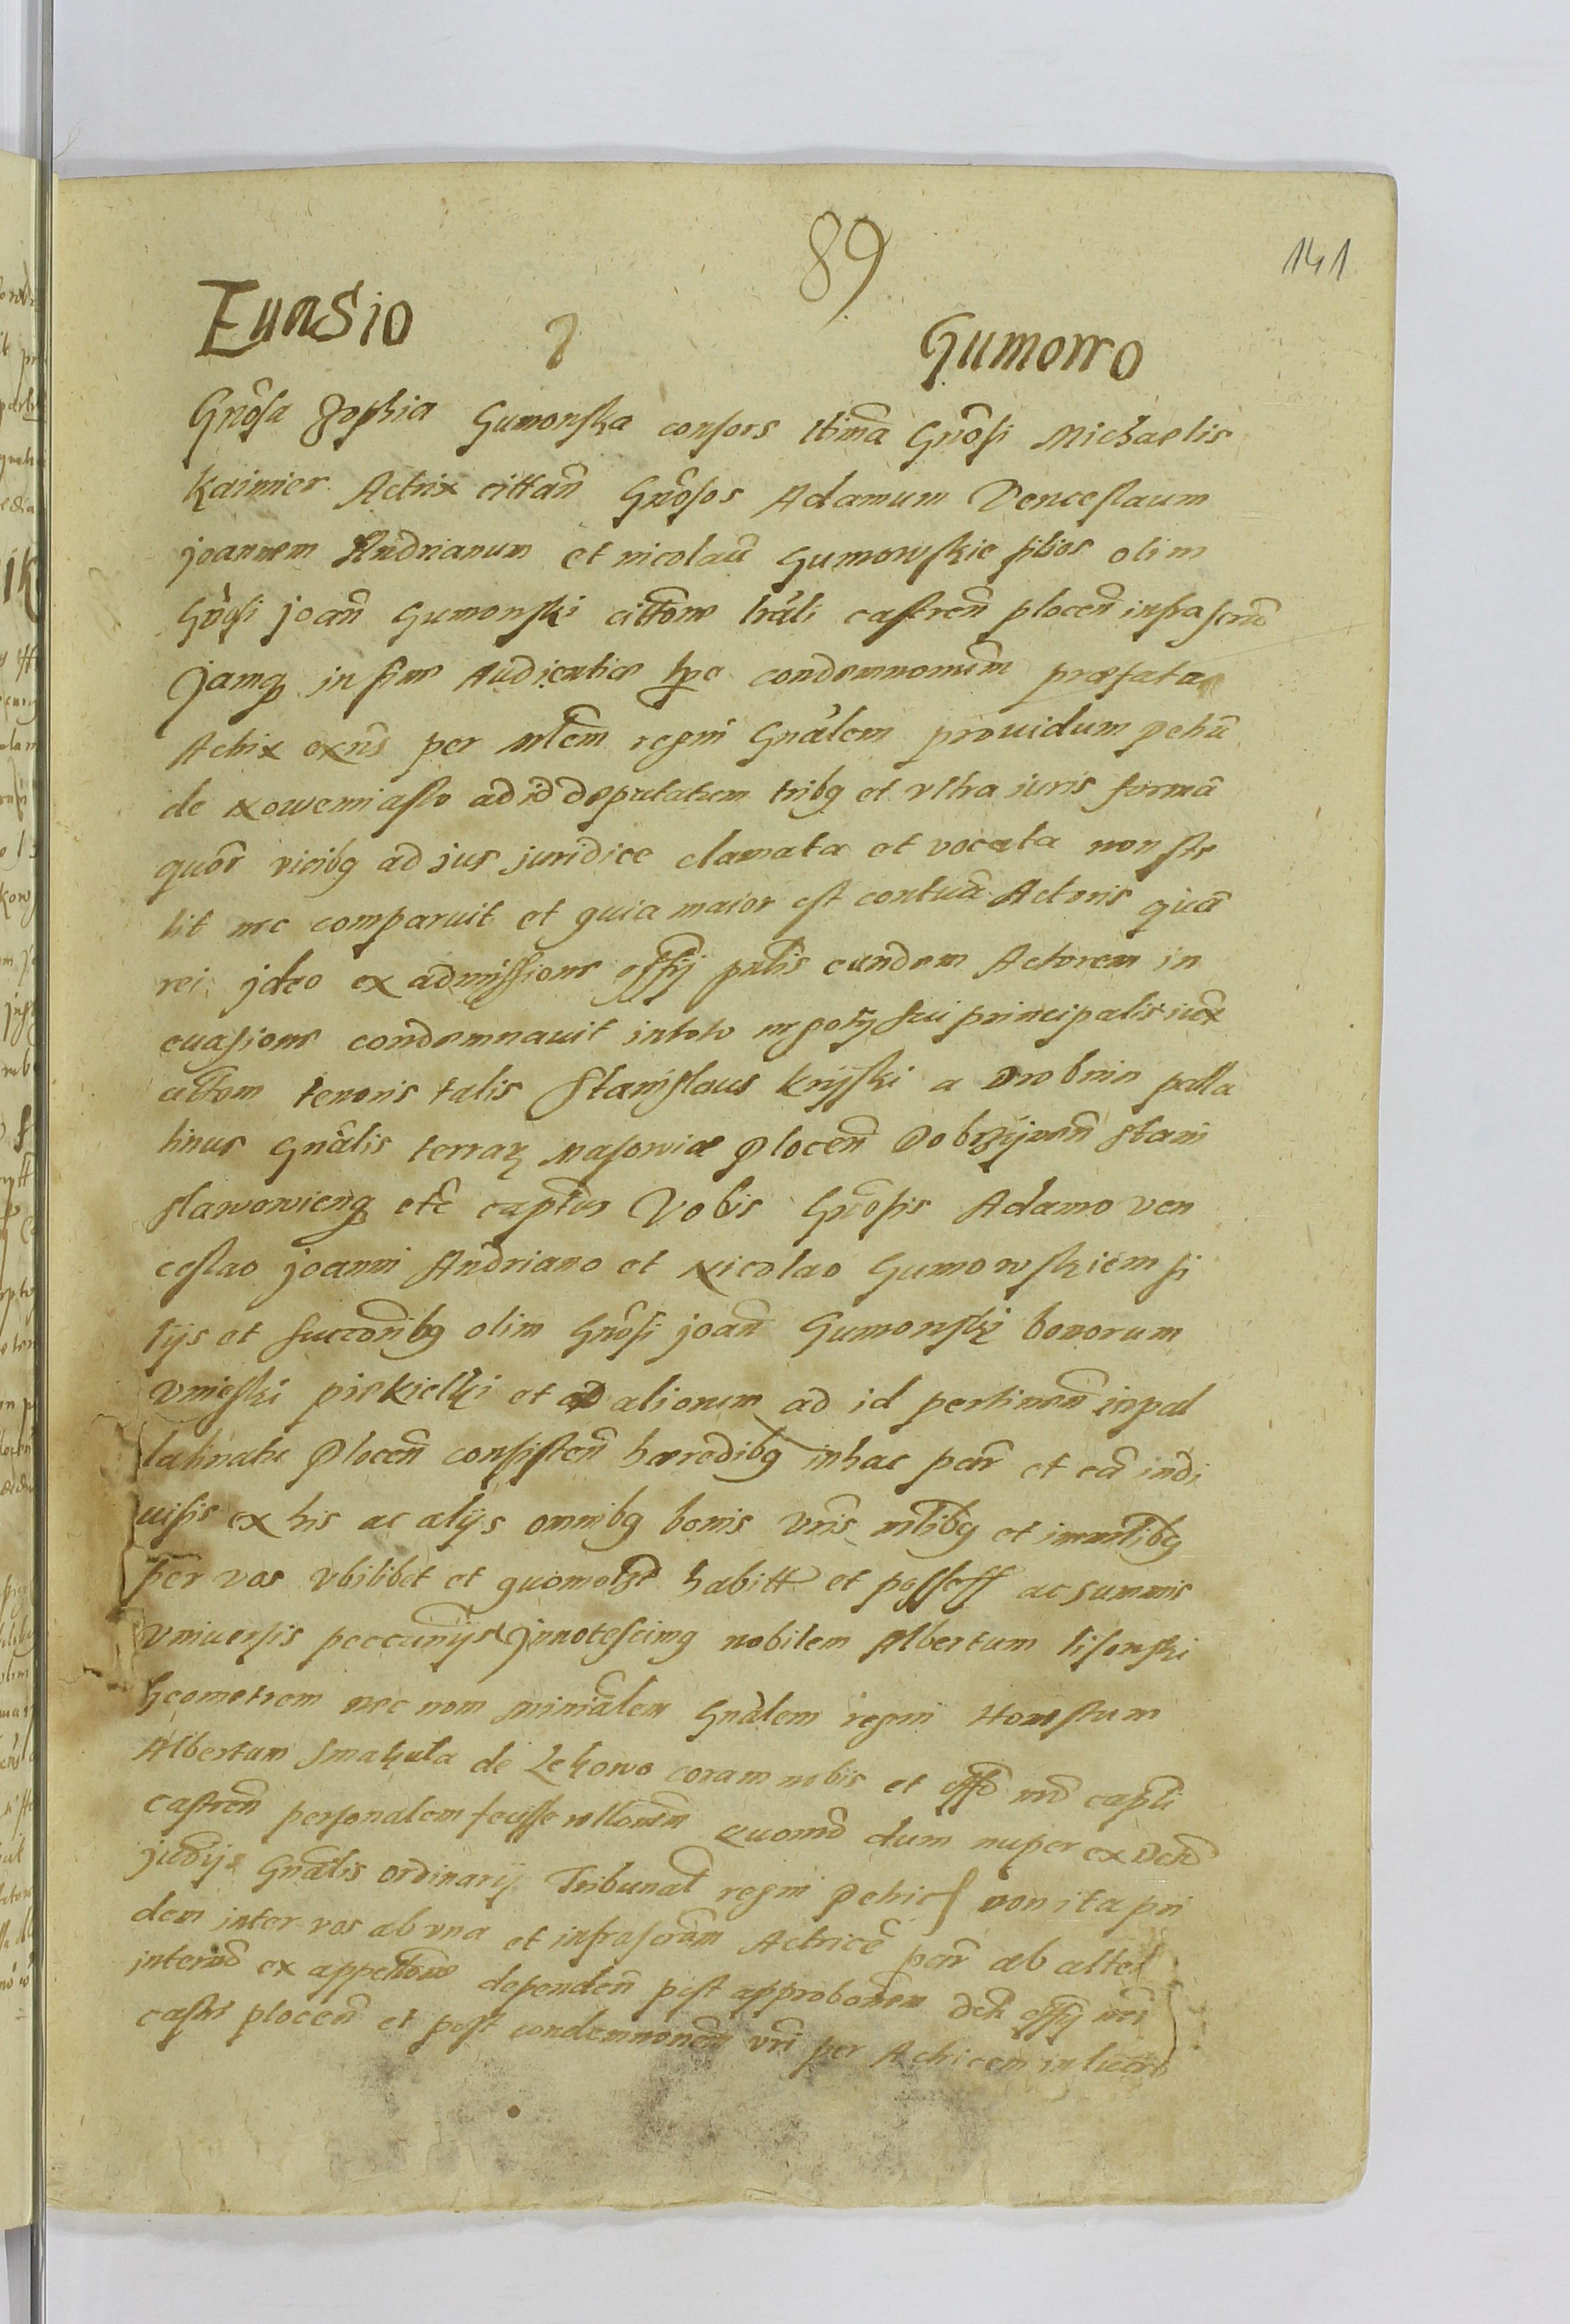 89
141
Euasio
Gumowo
Gnosa Zophia Gumowska consors ltima Gnosi Michaelis
Kaimier Actrix cittan Gnosos Adamum Venceslaum
joannem Andrianum et nicolau Gumowskie filios olim
Gnosi joan Gumowski cittone lrali castren plocen infrascrip
Jamq in fine Audientiae condemnonum praefata
Actrix exns per mlem regni Gnalem prouidum petru
de Nowemiasto ad id deputatum tribq et vltra iuris forma
quor vicibq ad jus juridice clamata et vocata non ste
tit nec comparuit et quia maior est contua Actoris qua
rei jdeo ex admissione offij pntis eundem Actorem in
euasione condemnauit in toto negotij sui principalis iux
cittem tenoris talis Stanislaus Kryski a Drobnin palla
tinus Gnalis terrar Masowiae Plocen Dobrzijnen stani
slawowienq etc captus Vobis Gnosis Adamo ven
ceslao joanni Andriano et Nicolao Gumowskiem fi
lijs et succoribq olim Gnosi joan Gumowski bonorum
vnieski piekielki et ad aliorum ad id pertinen in pal
latinatu Plocen consisten haeredibq in hac par et ca indi
uisis ex his ac alijs omnibq bonis vris mlibq et immlibq
per vos vbilibet et quomolzt habitt et possess ac summis
vniuersis peccunijs Jnnotescimq nobilem Albertum lisowski
Geometrem nec nom ministalem Gnalem regni Honestum
Albertum Smakula de Lekowo coram nobis et offo nro capli
castren personalem fecisse rellonem Quomo dum nuper ex Decr
judij Gnalis ordinarij Tribunal regni Petric non ita pri
dem inter vos ab vna et infrascram Actrice par ab alte
interuo ex appellone dependen post approbonem decr offij nri
castri plocen et post condemnonem vri per Actricem in lucro